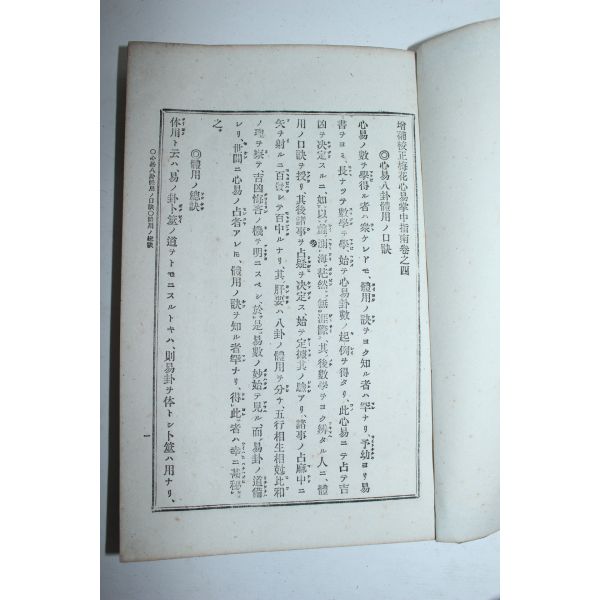 增補校正梅花心易掌中指南卷之四
◎心易八卦體用ノ口訣
心易ノ數ヲ學得ル者ハ衆ケレトモ、體用ノ訣ヲヨク知ル者ハ罕ナリ、予幼ヨリ易
書ヲヨミ、長ナツテ數學ヲ學、始テ心易卦數ノ起例ヲ得タリ、此心易ニテ占テ吉
凶ヲ決定スルニ、如以蠡測海茫然無涯際、其後數學ヲヨク辨タル人ニ、體
用ノ口訣ヲ授リ、其後諸事ヲ占疑ヲ決定ス、始テ定據其ノ驗アリ、諸事ノ占麻中ニ
矢ヲ射ルニ百發シテ百中ルナリ、其肝要ハ八卦ノ體用ヲ分チ、五行相生相尅比和
ノ理ヲ察テ吉凶悔吝ノ機ヲ明ニスベシ、於是易數ノ妙始テ見ル、而易卦ノ道備
レリ、世間ニ心易ノ占者アレトモ、體用ノ訣ヲ知ル者罕ナリ、得此者ハ幸ニ甚秘
之、
◎體用ノ總訣
体用ト云ハ易ノ卦ト筮ノ道ヲトモニスルトキハ、則易卦ヲ体トシト筮ハ用ナリ、
○心易八卦體用ノ口訣○體用ノ總訣
一